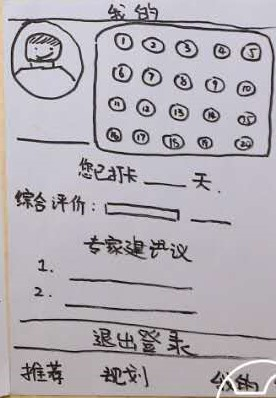 我的
① ② ③ ④ ⑤
⑥ ⑦ ⑧ ⑨ ⑩
⑪ ⑫ ⑬ ⑭ ⑮
⑯ ⑰ ⑱ ⑲ ⑳
您已打卡 ____ 天.
综合评价:
专家建议
1.
2.
退出登录
推荐 规划 我的